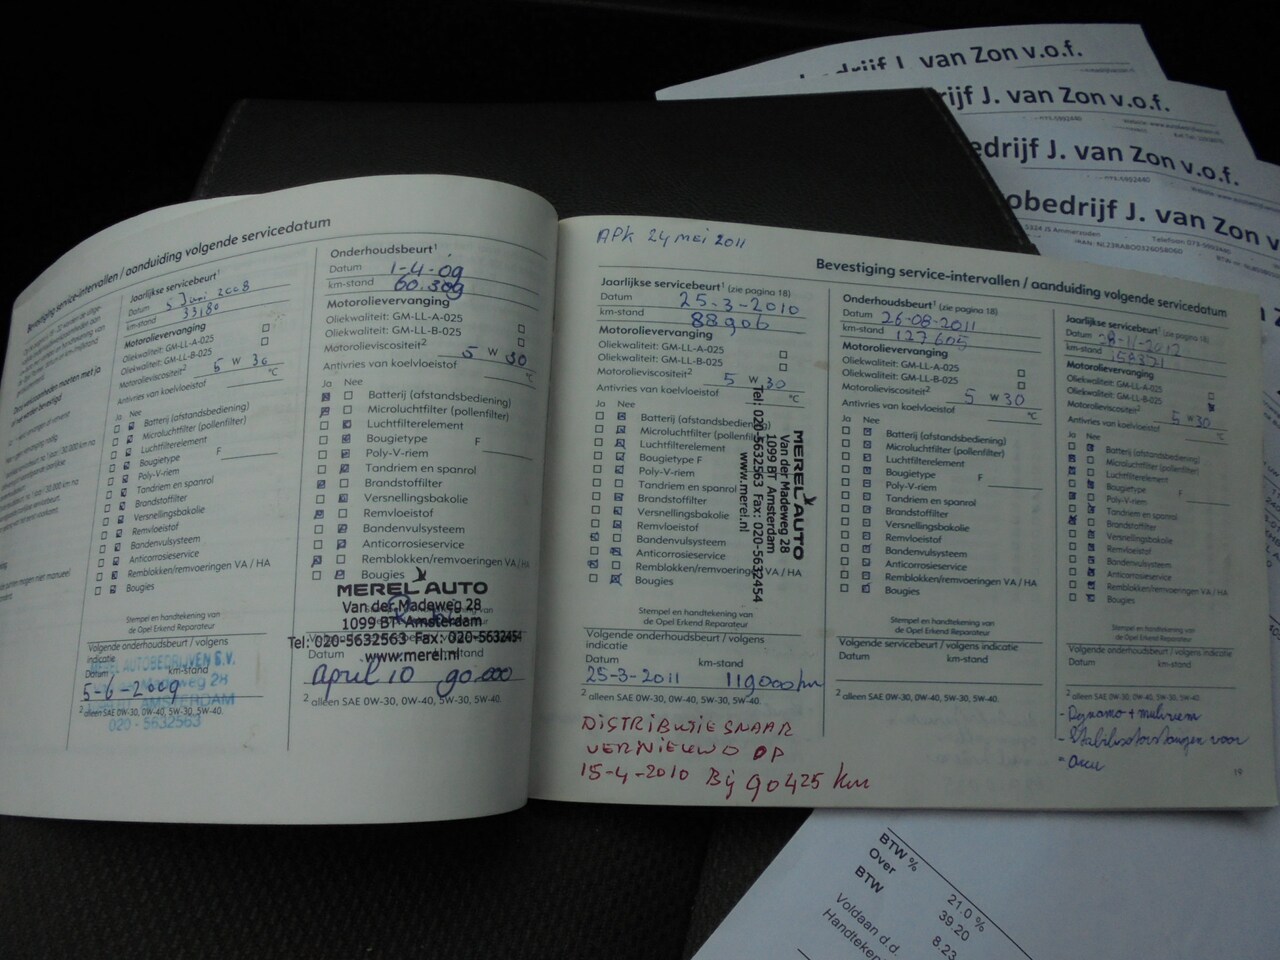 Bevestiging service-intervallen / aanduiding volgende servicedatum
Jaarlijkse servicebeurt1
Datum 5 Juni 2008
km-stand 33180
Motorolievervanging
Oliekwaliteit: GM-LL-A-025
Oliekwaliteit: GM-LL-B-025
Motorolieviscositeit2 5 W 30
Antivries van koelvloeistof °C
Ja Nee
Batterij (afstandsbediening)
Microluchtfilter (pollenfilter)
Luchtfilterelement
Bougietype F
Poly-V-riem
Tandriem en spanrol
Brandstoffilter
Versnellingsbakolie
Remvloeistof
Bandenvulsysteem
Anticorrosieservice
Remblokken/remvoeringen VA / HA
Bougies
Stempel en handtekening van
de Opel Erkend Reparateur
Volgende onderhoudsbeurt / volgens
indicatie
Datum km-stand
5-6-2009
MEREL AUTOBEDRIJVEN B.V.
AMSTERDAM
020 - 5632563
2 alleen SAE 0W-30, 0W-40, 5W-30, 5W-40.
Onderhoudsbeurt1
Datum 1-4-09
km-stand 60.309
Motorolievervanging
Oliekwaliteit: GM-LL-A-025
Oliekwaliteit: GM-LL-B-025
Motorolieviscositeit2 5 W 30
Antivries van koelvloeistof °C
Ja Nee
Batterij (afstandsbediening)
Microluchtfilter (pollenfilter)
Luchtfilterelement
Bougietype F
Poly-V-riem
Tandriem en spanrol
Brandstoffilter
Versnellingsbakolie
Remvloeistof
Bandenvulsysteem
Anticorrosieservice
Remblokken/remvoeringen VA / HA
Bougies
MEREL AUTO
Van der Madeweg 28
1099 BT Amsterdam
Tel: 020-5632563 Fax: 020-5632454
www.merel.nl
Datum km-stand
april 10 90.000
2 alleen SAE 0W-30, 0W-40, 5W-30, 5W-40.
APK 24 MEI 2011
Bevestiging service-intervallen / aanduiding volgende servicedatum
Jaarlijkse servicebeurt1 (zie pagina 18)
Datum 25-3-2010
km-stand 88906
Motorolievervanging
Oliekwaliteit: GM-LL-A-025
Oliekwaliteit: GM-LL-B-025
Motorolieviscositeit2 5 W 30
Antivries van koelvloeistof °C
Ja Nee
Batterij (afstandsbediening)
Microluchtfilter (pollenfilter)
Luchtfilterelement
Bougietype F
Poly-V-riem
Tandriem en spanrol
Brandstoffilter
Versnellingsbakolie
Remvloeistof
Bandenvulsysteem
Anticorrosieservice
Remblokken/remvoeringen VA / HA
Bougies
MEREL AUTO
Van der Madeweg 28
1099 BT Amsterdam
Tel: 020-5632563 Fax: 020-5632454
www.merel.nl
Stempel en handtekening van
de Opel Erkend Reparateur
Volgende onderhoudsbeurt / volgens
indicatie
Datum km-stand
25-3-2011 119000 km
2 alleen SAE 0W-30, 0W-40, 5W-30, 5W-40.
DISTRIBUTIESNAAR
VERNIEUWD OP
15-4-2010 Bij 90425 km
Onderhoudsbeurt1 (zie pagina 18)
Datum 26-08-2011
km-stand 127605
Motorolievervanging
Oliekwaliteit: GM-LL-A-025
Oliekwaliteit: GM-LL-B-025
Motorolieviscositeit2 5 W 30
Antivries van koelvloeistof °C
Ja Nee
Batterij (afstandsbediening)
Microluchtfilter (pollenfilter)
Luchtfilterelement
Bougietype F
Poly-V-riem
Tandriem en spanrol
Brandstoffilter
Versnellingsbakolie
Remvloeistof
Bandenvulsysteem
Anticorrosieservice
Remblokken/remvoeringen VA / HA
Bougies
Stempel en handtekening van
de Opel Erkend Reparateur
Volgende servicebeurt / volgens indicatie
Datum km-stand
2 alleen SAE 0W-30, 0W-40, 5W-30, 5W-40.
Jaarlijkse servicebeurt1 (zie pagina 18)
Datum 8-11-2012
km-stand 158371
Motorolievervanging
Oliekwaliteit: GM-LL-A-025
Oliekwaliteit: GM-LL-B-025
Motorolieviscositeit2 5 W 30
Antivries van koelvloeistof °C
Ja Nee
Batterij (afstandsbediening)
Microluchtfilter (pollenfilter)
Luchtfilterelement
Bougietype F
Poly-V-riem
Tandriem en spanrol
Brandstoffilter
Versnellingsbakolie
Remvloeistof
Bandenvulsysteem
Anticorrosieservice
Remblokken/remvoeringen VA / HA
Bougies
Stempel en handtekening van
de Opel Erkend Reparateur
Volgende onderhoudsbeurt / volgens indicatie
Datum km-stand
2 alleen SAE 0W-30, 0W-40, 5W-30, 5W-40.
- Dynamo + multiriem
- Stabilisatorstangen voor
- accu
19
J. van Zon v.o.f.
rijf J. van Zon v.o.f.
edrijf J. van Zon v.o.f.
obedrijf J. van Zon v.o.f.
5324 JS Ammerzoden
Telefoon 073-5992440
BTW % 21.0 %
Over 39.20
BTW 8.23
Voldaan d.d.